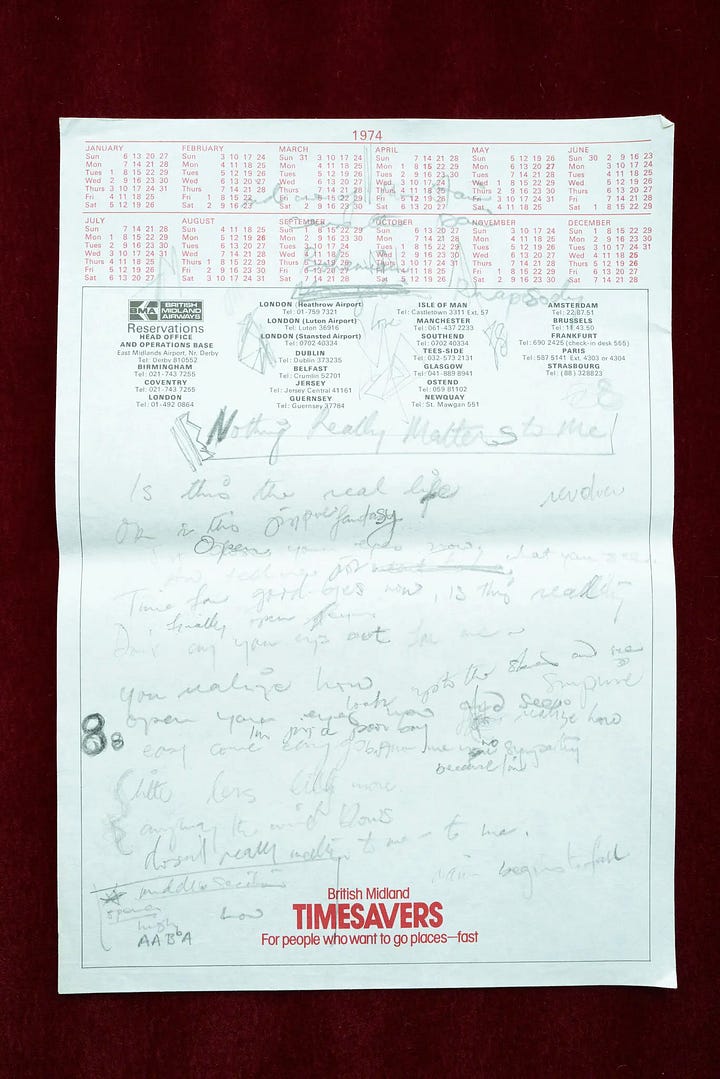 1974
JANUARY
Sun 6 13 20 27
Mon 7 14 21 28
Tues 1 8 15 22 29
Wed 2 9 16 23 30
Thurs 3 10 17 24 31
Fri 4 11 18 25
Sat 5 12 19 26
FEBRUARY
Sun 3 10 17 24
Mon 4 11 18 25
Tues 5 12 19 26
Wed 6 13 20 27
Thurs 7 14 21 28
Fri 1 8 15 22
Sat 2 9 16 23
MARCH
Sun 31 3 10 17 24
Mon 4 11 18 25
Tues 5 12 19 26
Wed 6 13 20 27
Thurs 7 14 21 28
Fri 1 8 15 22 29
Sat 2 9 16 23 30
APRIL
Sun 7 14 21 28
Mon 1 8 15 22 29
Tues 2 9 16 23 30
Wed 3 10 17 24
Thurs 4 11 18 25
Fri 5 12 19 26
Sat 6 13 20 27
MAY
Sun 5 12 19 26
Mon 6 13 20 27
Tues 7 14 21 28
Wed 1 8 15 22 29
Thurs 2 9 16 23 30
Fri 3 10 17 24 31
Sat 4 11 18 25
JUNE
Sun 30 2 9 16 23
Mon 3 10 17 24
Tues 4 11 18 25
Wed 5 12 19 26
Thurs 6 13 20 27
Fri 7 14 21 28
Sat 1 8 15 22 29
JULY
Sun 7 14 21 28
Mon 1 8 15 22 29
Tues 2 9 16 23 30
Wed 3 10 17 24 31
Thurs 4 11 18 25
Fri 5 12 19 26
Sat 6 13 20 27
AUGUST
Sun 4 11 18 25
Mon 5 12 19 26
Tues 6 13 20 27
Wed 7 14 21 28
Thurs 1 8 15 22 29
Fri 2 9 16 23 30
Sat 3 10 17 24 31
SEPTEMBER
Sun 1 8 15 22 29
Mon 2 9 16 23 30
Tues 3 10 17 24
Wed 4 11 18 25
Thurs 5 12 19 26
Fri 6 13 20 27
Sat 7 14 21 28
OCTOBER
Sun 6 13 20 27
Mon 7 14 21 28
Tues 1 8 15 22 29
Wed 2 9 16 23 30
Thurs 3 10 17 24 31
Fri 4 11 18 25
Sat 5 12 19 26
NOVEMBER
Sun 3 10 17 24
Mon 4 11 18 25
Tues 5 12 19 26
Wed 6 13 20 27
Thurs 7 14 21 28
Fri 1 8 15 22 29
Sat 2 9 16 23 30
DECEMBER
Sun 1 8 15 22 29
Mon 2 9 16 23 30
Tues 3 10 17 24 31
Wed 4 11 18 25
Thurs 5 12 19 26
Fri 6 13 20 27
Sat 7 14 21 28
Rhapsody
BMA BRITISH MIDLAND AIRWAYS
Reservations
HEAD OFFICE
AND OPERATIONS BASE
East Midlands Airport, Nr. Derby
Tel: Derby 810552
BIRMINGHAM
Tel: 021-743 7255
COVENTRY
Tel: 021-743 7255
LONDON
Tel: 01-492 0864
LONDON (Heathrow Airport)
Tel: 01-759 7321
LONDON (Luton Airport)
Tel: Luton 36916
LONDON (Stansted Airport)
Tel: 0702 40334
DUBLIN
Tel: Dublin 373235
BELFAST
Tel: Crumlin 52701
JERSEY
Tel: Jersey Central 41161
GUERNSEY
Tel: Guernsey 37784
ISLE OF MAN
Tel: Castletown 3311 Ext. 57
MANCHESTER
Tel: 061-437 2233
SOUTHEND
Tel: 0702 40334
TEES-SIDE
Tel: 032-573 2131
GLASGOW
Tel: 041-889 8941
OSTEND
Tel: 059 81102
NEWQUAY
Tel: St. Mawgan 551
AMSTERDAM
Tel: 22.87.51
BRUSSELS
Tel: 11.43.50
FRANKFURT
Tel: 690 2425 (check-in desk 555)
PARIS
Tel: 587 5141 Ext. 4303 or 4304
STRASBOURG
Tel: (88) 328823
Nothing Really Matters to me
Is this the real life
or is this fantasy
Open your eyes now what you see
Time for good-byes now, is this reality
finally open
Don't cry for me
you realize how
look upto the skies and see
open your eyes now
realize how
I'm just a poor boy
easy come easy go no sympathy
because I'm
little less little more
anyway the wind blows
doesn't really matter to me - to me.
begins to fall
middle section
how
high
AABA
British Midland
TIMESAVERS
For people who want to go places—fast